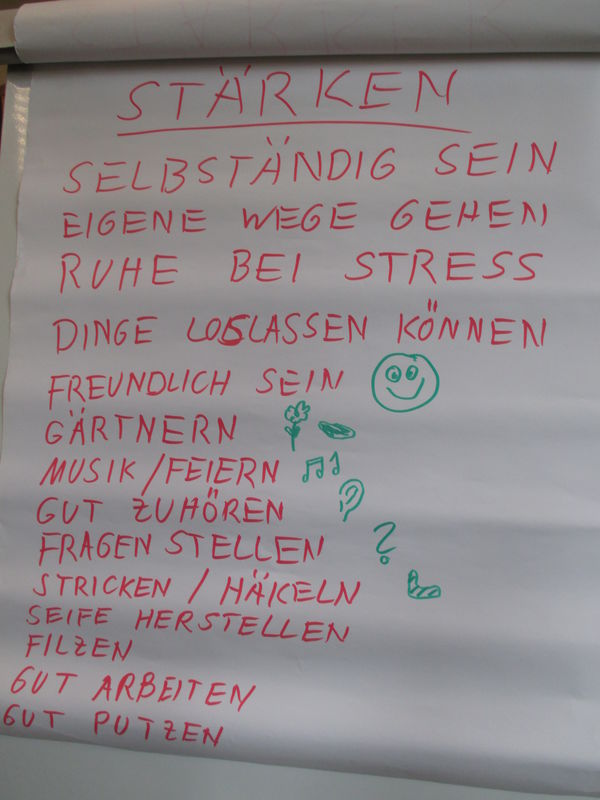 STÄRKEN
SELBSTÄNDIG SEIN
EIGENE WEGE GEHEN
RUHE BEI STRESS
DINGE LOSLASSEN KÖNNEN
FREUNDLICH SEIN
GÄRTNERN
MUSIK/FEIERN
GUT ZUHÖREN
FRAGEN STELLEN ?
STRICKEN / HÄKELN
SEIFE HERSTELLEN
FILZEN
GUT ARBEITEN
GUT PUTZEN